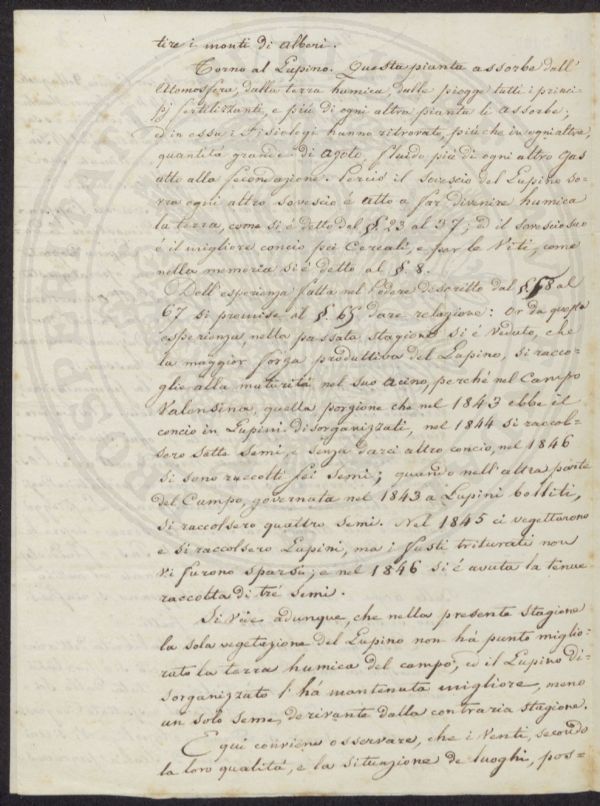 tire i monti di alberi.
Torno al Lupino. Questa pianta assorbe dall'
Atomosfera, dalla terra humica, dalle piogge tutti i princi
pj fertilizzanti, e più di ogni altra pianta le assorbe;
ed in essa i Fisiologi hanno ritrovato, più che in ogni altra,
quantità grande di agoto, fluido più di ogni altro gas
atto alla fecondazione. Perciò il sovescio del Lupino so-
vra ogni altro sovescio è atto a far divenire humica
la terra, come si è detto del §. 23 al 37; ed il sovescio suo
è il migliore concio pei Cereali, e per le Viti, come
nella memoria si è detto al §. 8.
Dell'esperienza fatta nel Podere descritto dal § 58 al
67 si promise al §. 65 dare relazione: Or da questa
esperienza, nella passata stagione si è veduto, che
la maggior forza produttiva del Lupino, si racco-
glie alla maturità nel suo acino, perchè nel Campo
Valonsina, quella porzione che nel 1843 ebbe il
concio in Lupini disorganizzati, nel 1844 si raccol-
sero sette semi, e senza darci altro concio, nel 1846
si sono raccolti sei semi; quando nell'altra parte
del Campo, governata nel 1843 a Lupini bolliti,
si raccolsero quattro semi. Nel 1845 ci vegettarono
e si raccolsero Lupini, ma i fusti triturati non
vi furono sparsi; e nel 1846 si è avuta la tenue
raccolta di tre semi.
Si vide adunque, che nella presente stagione
la sola vegetazione del Lupino non ha punto miglio-
rato la terra humica del campo; ed il Lupino di-
sorganizzato l'ha mantenuta migliore, meno
un solo seme, derivante dalla contraria stagione.
E qui conviene osservare, che i Venti, secondo
la loro qualità, e la situazione de luoghi, pos=